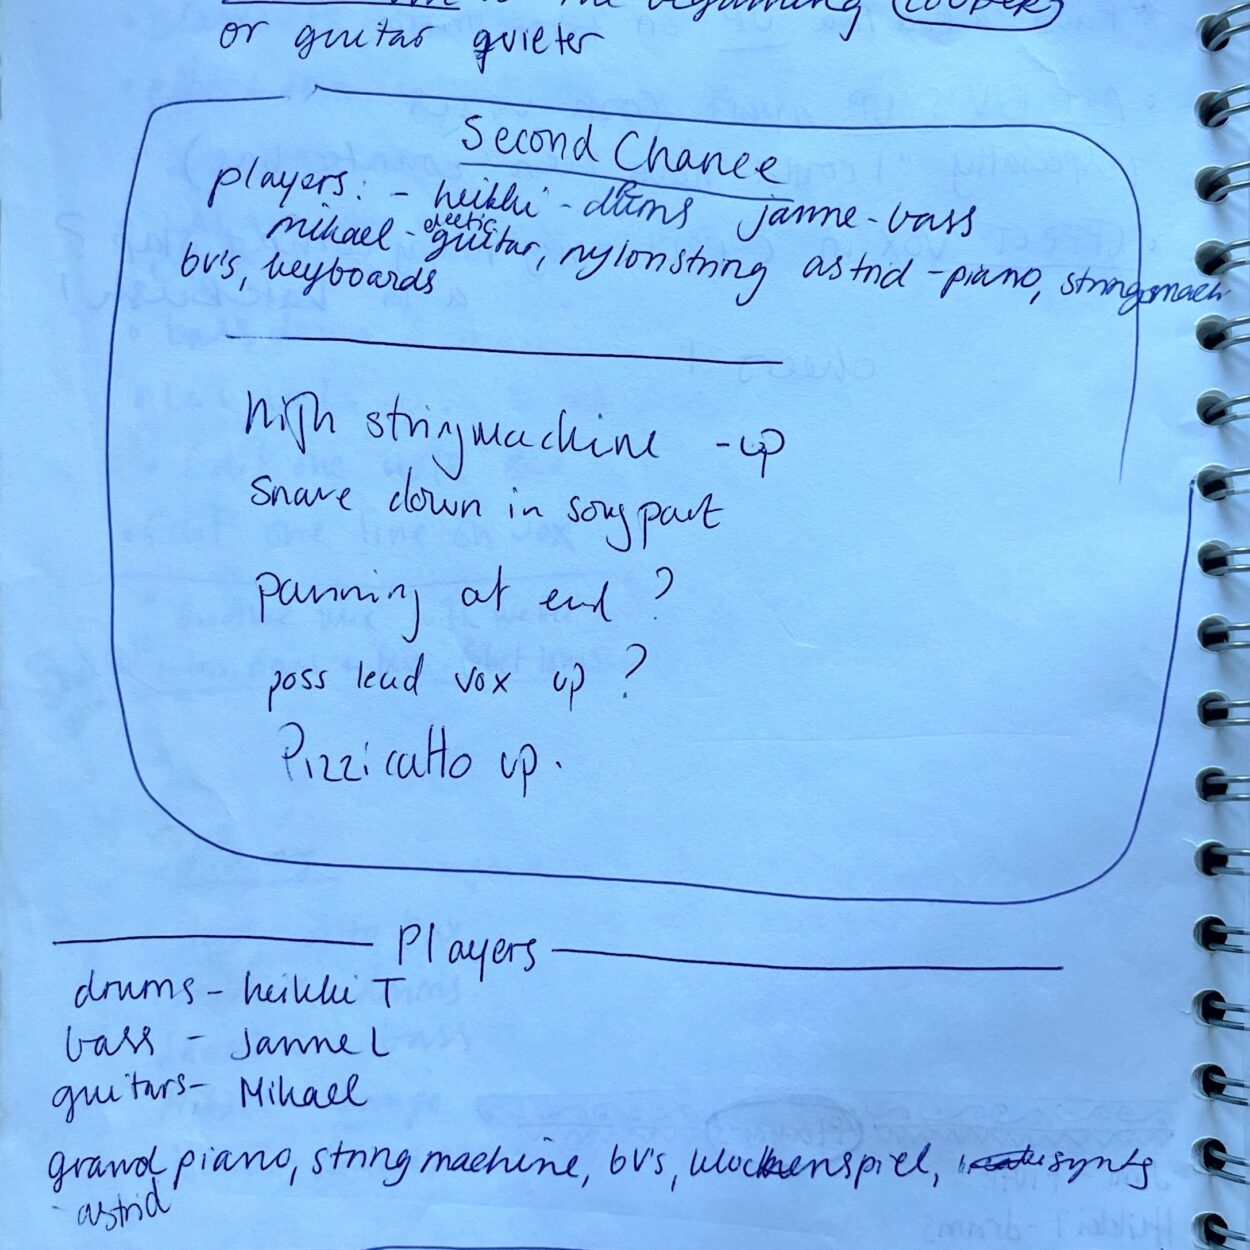 the beginning
or guitar quieter
Second Chance
players: - heikki - drums janne - bass
mikael - electic guitar, nylonstring astrid - piano, stringsmach
bv's, keyboards
high stringmachine - up
Snare down in song part
panning at end ?
poss lead vox up ?
Pizzicatto up.
Players
drums - heikki T
bass - Janne L
guitars - Mikael
grand piano, string machine, bv's, klockenspiel, synths
- astrid